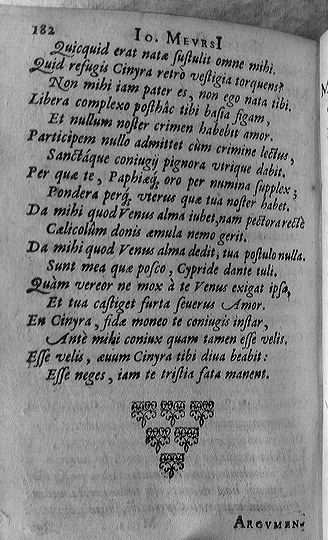 182 IO. MEVRSI
Quicquid erat natæ sustulit omne mihi.
Quid refugis Cinyra retrò vestigia torquens?
Non mihi iam pater es, non ego nata tibi.
Libera complexo posthàc tibi basia figam,
Et nullum noster crimen habebit amor.
Participem nullo admittet cùm crimine lectus,
Sanctáque coniugij pignora vtrique dabit.
Per quæ te, Paphiæq́; oro per numina supplex;
Pondera perq́; vterus quæ tua noster habet.
Da mihi quod Venus alma iubet, nam pectora rectè
Cælicolûm donis æmula nemo gerit.
Da mihi quod Venus alma dedit, tua postulo nulla.
Sunt mea quæ posco, Cypride dante tuli.
Quàm vereor ne mox à te Venus exigat ipsa,
Et tua castiget furta seuerus Amor.
En Cinyra, fidæ moneo te coniugis instar,
Antè mihi coniux quam tamen esse velis.
Esse velis, æuum Cinyra tibi diua beabit:
Esse neges, iam te tristia fata manent.
ARGVMEN-